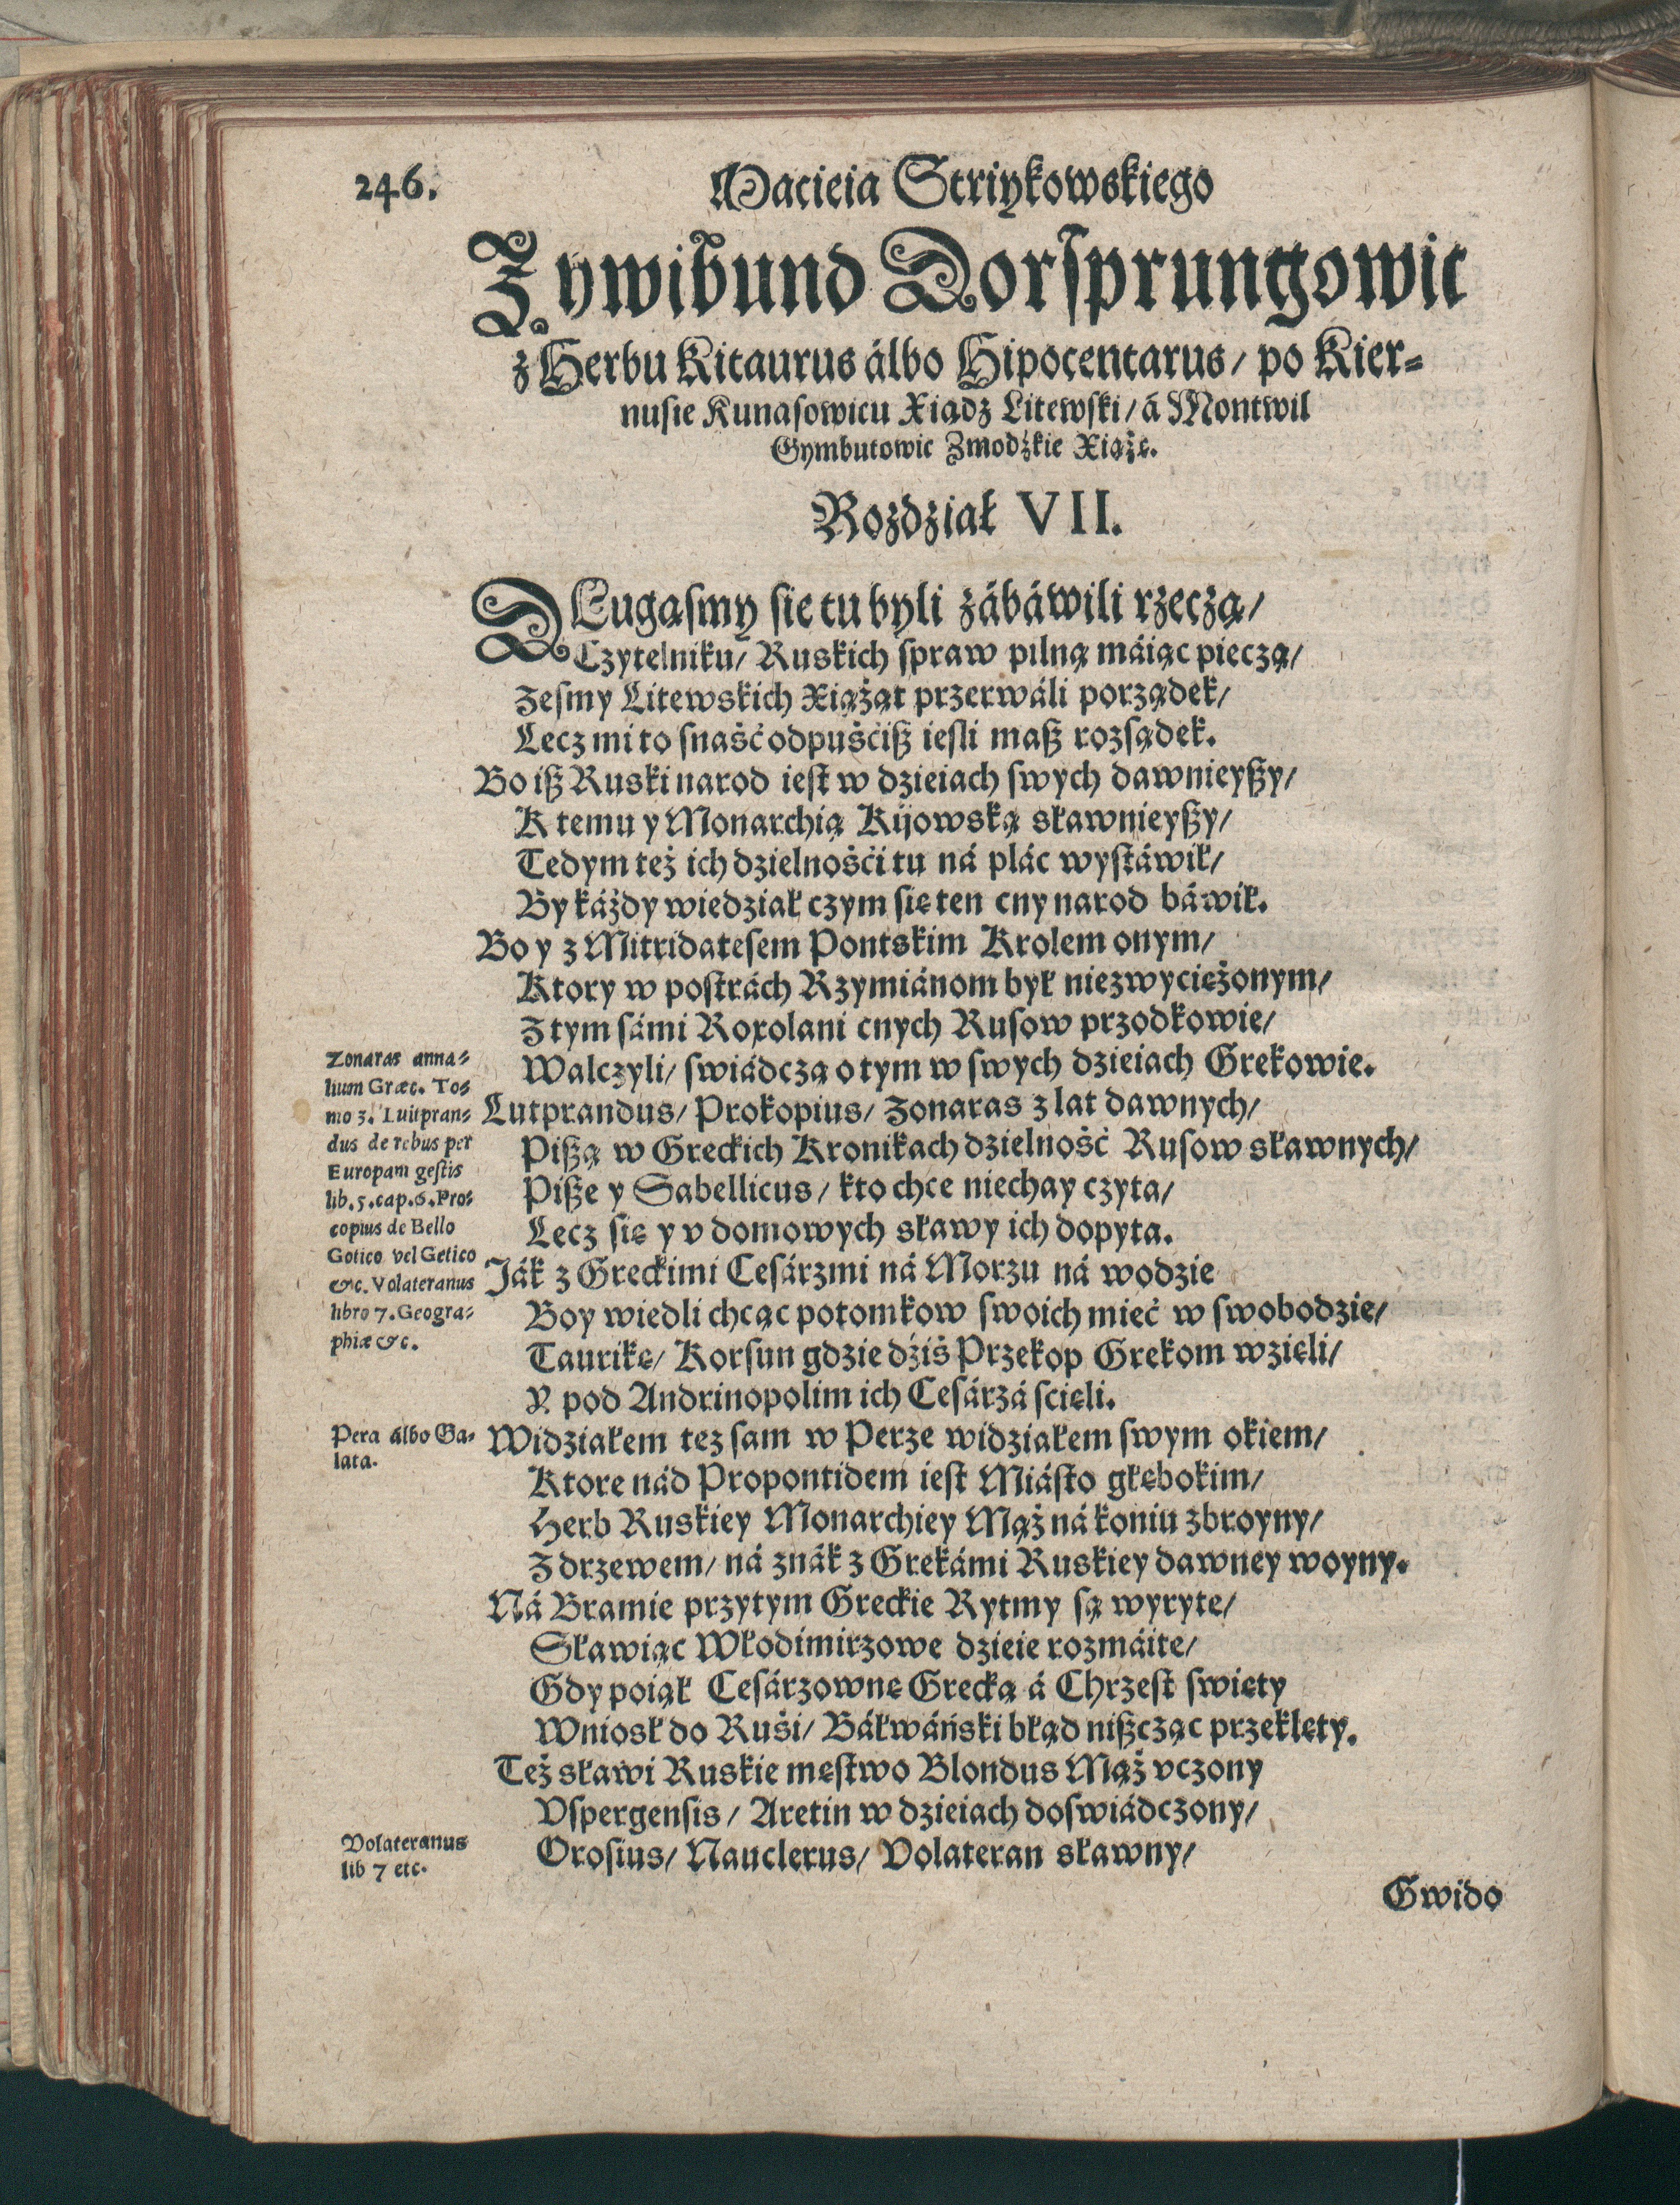 246.
Macieia Striykowskiego
Zywibund Dorſprungowic
z Herbu Kitaurus álbo Hipocentarus/ po Kier-
nuſie Kunaſowicu Xiądz Litewſki/ á Montwil
Gymbutowic Zmodźkie Xiążę.
Rozdział VII.
DŁugąſmy ſie tu byli zábáwili rzeczą/
Czytelniku/ Ruskich ſpraw pilną máiąc pieczą/
Zeſmy Litewskich Xiążąt przerwáli porządek/
Lecz mi to ſnaść odpuściß ieſli maß rozſądek.
Bo iß Ruski narod ieſt w dzieiach ſwych dawnieyßy/
K temu y Monarchią Kijowską sławnieyßy/
Tedym też ich dzielności tu ná plác wyſtáwił/
By káżdy wiedział czym się ten cny narod báwił.
Bo y z Mitridateſem Pontskim Krolem onym/
Ktory w poſtrách Rzymiánom był niezwyciężonym/
Z tym ſámi Roxolani cnych Ruſow przodkowie/
Zonaras anna-
lium Græc. To-
mo 3. Luitpran-
dus de rebus per
Europam geſtis
lib. 5. cap. 6. Pro-
copius de Bello
Gotico vel Getico
&c. Volateranus
libro 7. Geogra-
phiæ &c.
Walczyli/ ſwiádczą o tym w ſwych dzieiach Grekowie.
Lutprandus/ Prokopius/ Zonaras z lat dawnych/
Pißą w Greckich Kronikach dzielność Ruſow sławnych/
Piße y Sabellicus/ kto chce niechay czyta/
Lecz się y v domowych sławy ich dopyta.
Ják z Greckimi Ceſárzmi ná Morzu ná wodzie
Boy wiedli chcąc potomkow ſwoich mieć w ſwobodzie/
Taurikę/ Korſun gdzie dźiś Przekop Grekom wzięli/
Y pod Andrinopolim ich Ceſárzá ſcięli.
Pera álbo Ga-
lata.
Widziałem tez ſam w Perze widziałem ſwym okiem/
Ktore nád Propontidem ieſt Miáſto głębokim/
Herb Ruskiey Monarchiey Mąż ná koniu zbroyny/
Z drzewem/ ná znák z Grekámi Ruskiey dawney woyny.
Ná Bramie przytym Greckie Rytmy ſą wyryte/
Sławiąc Włodimirzowe dzieie rozmáite/
Gdy poiął Ceſárzownę Grecką á Chrzeſt ſwięty
Wnioſł do Ruśi/ Báłwáński błąd nißcząc przeklęty.
Też sławi Ruskie męſtwo Blondus Mąż vczony
Vſpergenſis/ Aretin w dzieiach doſwiádczony/
Volateranus
lib 7 etc.
Oroſius/ Nauclerus/ Volateran sławny/
Gwido